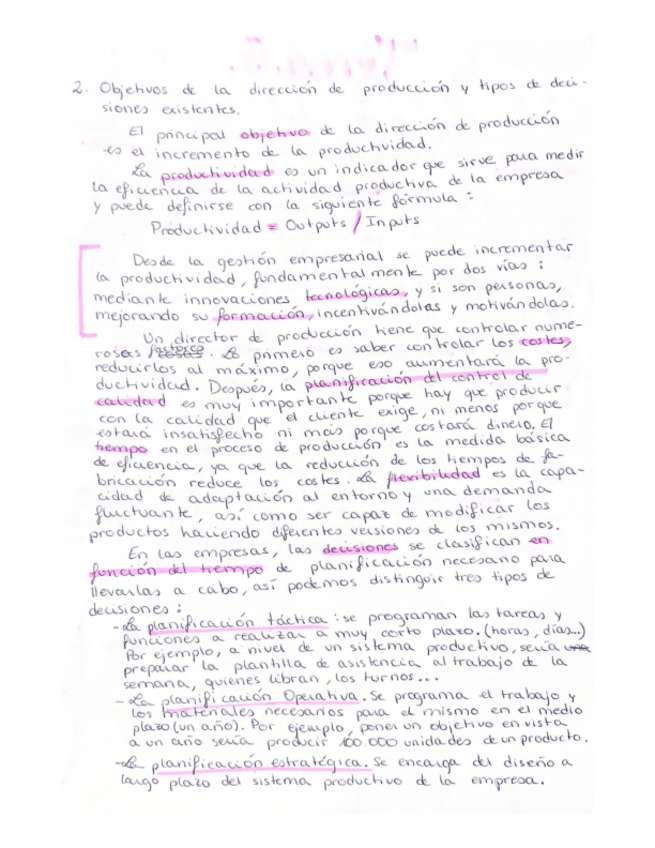 2. Objetivos de la dirección de producción y tipos de deci-
siones existentes.
El principal objetivo de la dirección de producción
es el incremento de la productividad.
La productividad es un indicador que sirve para medir
la eficiencia de la actividad productiva de la empresa
y puede definirse con la siguiente fórmula :
Productividad = Outputs / Inputs
Desde la gestión empresarial se puede incrementar
la productividad, fundamentalmente por dos vías :
mediante innovaciones tecnológicas, y si son personas,
mejorando su formación, incentivándolas y motivándolas.
Un director de producción tiene que controlar nume-
rosos factores. Lo primero es saber controlar los costes,
reducirlos al máximo, porque eso aumentará la pro-
ductividad. Después, la planificación del control de
calidad es muy importante porque hay que producir
con la calidad que el cliente exige, ni menos porque
estará insatisfecho ni más porque costará dinero. El
tiempo en el proceso de producción es la medida básica
de eficiencia, ya que la reducción de los tiempos de fa-
bricación reduce los costes. La flexibilidad es la capa-
cidad de adaptación al entorno y una demanda
fluctuante, así como ser capaz de modificar los
productos haciendo diferentes versiones de los mismos.
En las empresas, las decisiones se clasifican en
función del tiempo de planificación necesario para
llevarlas a cabo, así podemos distinguir tres tipos de
decisiones :
- La planificación táctica : se programan las tareas y
funciones a realizar a muy corto plazo. (horas, días...)
Por ejemplo, a nivel de un sistema productivo, sería
preparar la plantilla de asistencia al trabajo de la
semana, quienes libran, los turnos...
- La planificación Operativa. Se programa el trabajo y
los materiales necesarios para el mismo en el medio
plazo (un año). Por ejemplo, poner un objetivo en vista
a un año sería producir 100.000 unidades de un producto.
- La planificación estratégica. Se encarga del diseño a
largo plazo del sistema productivo de la empresa.